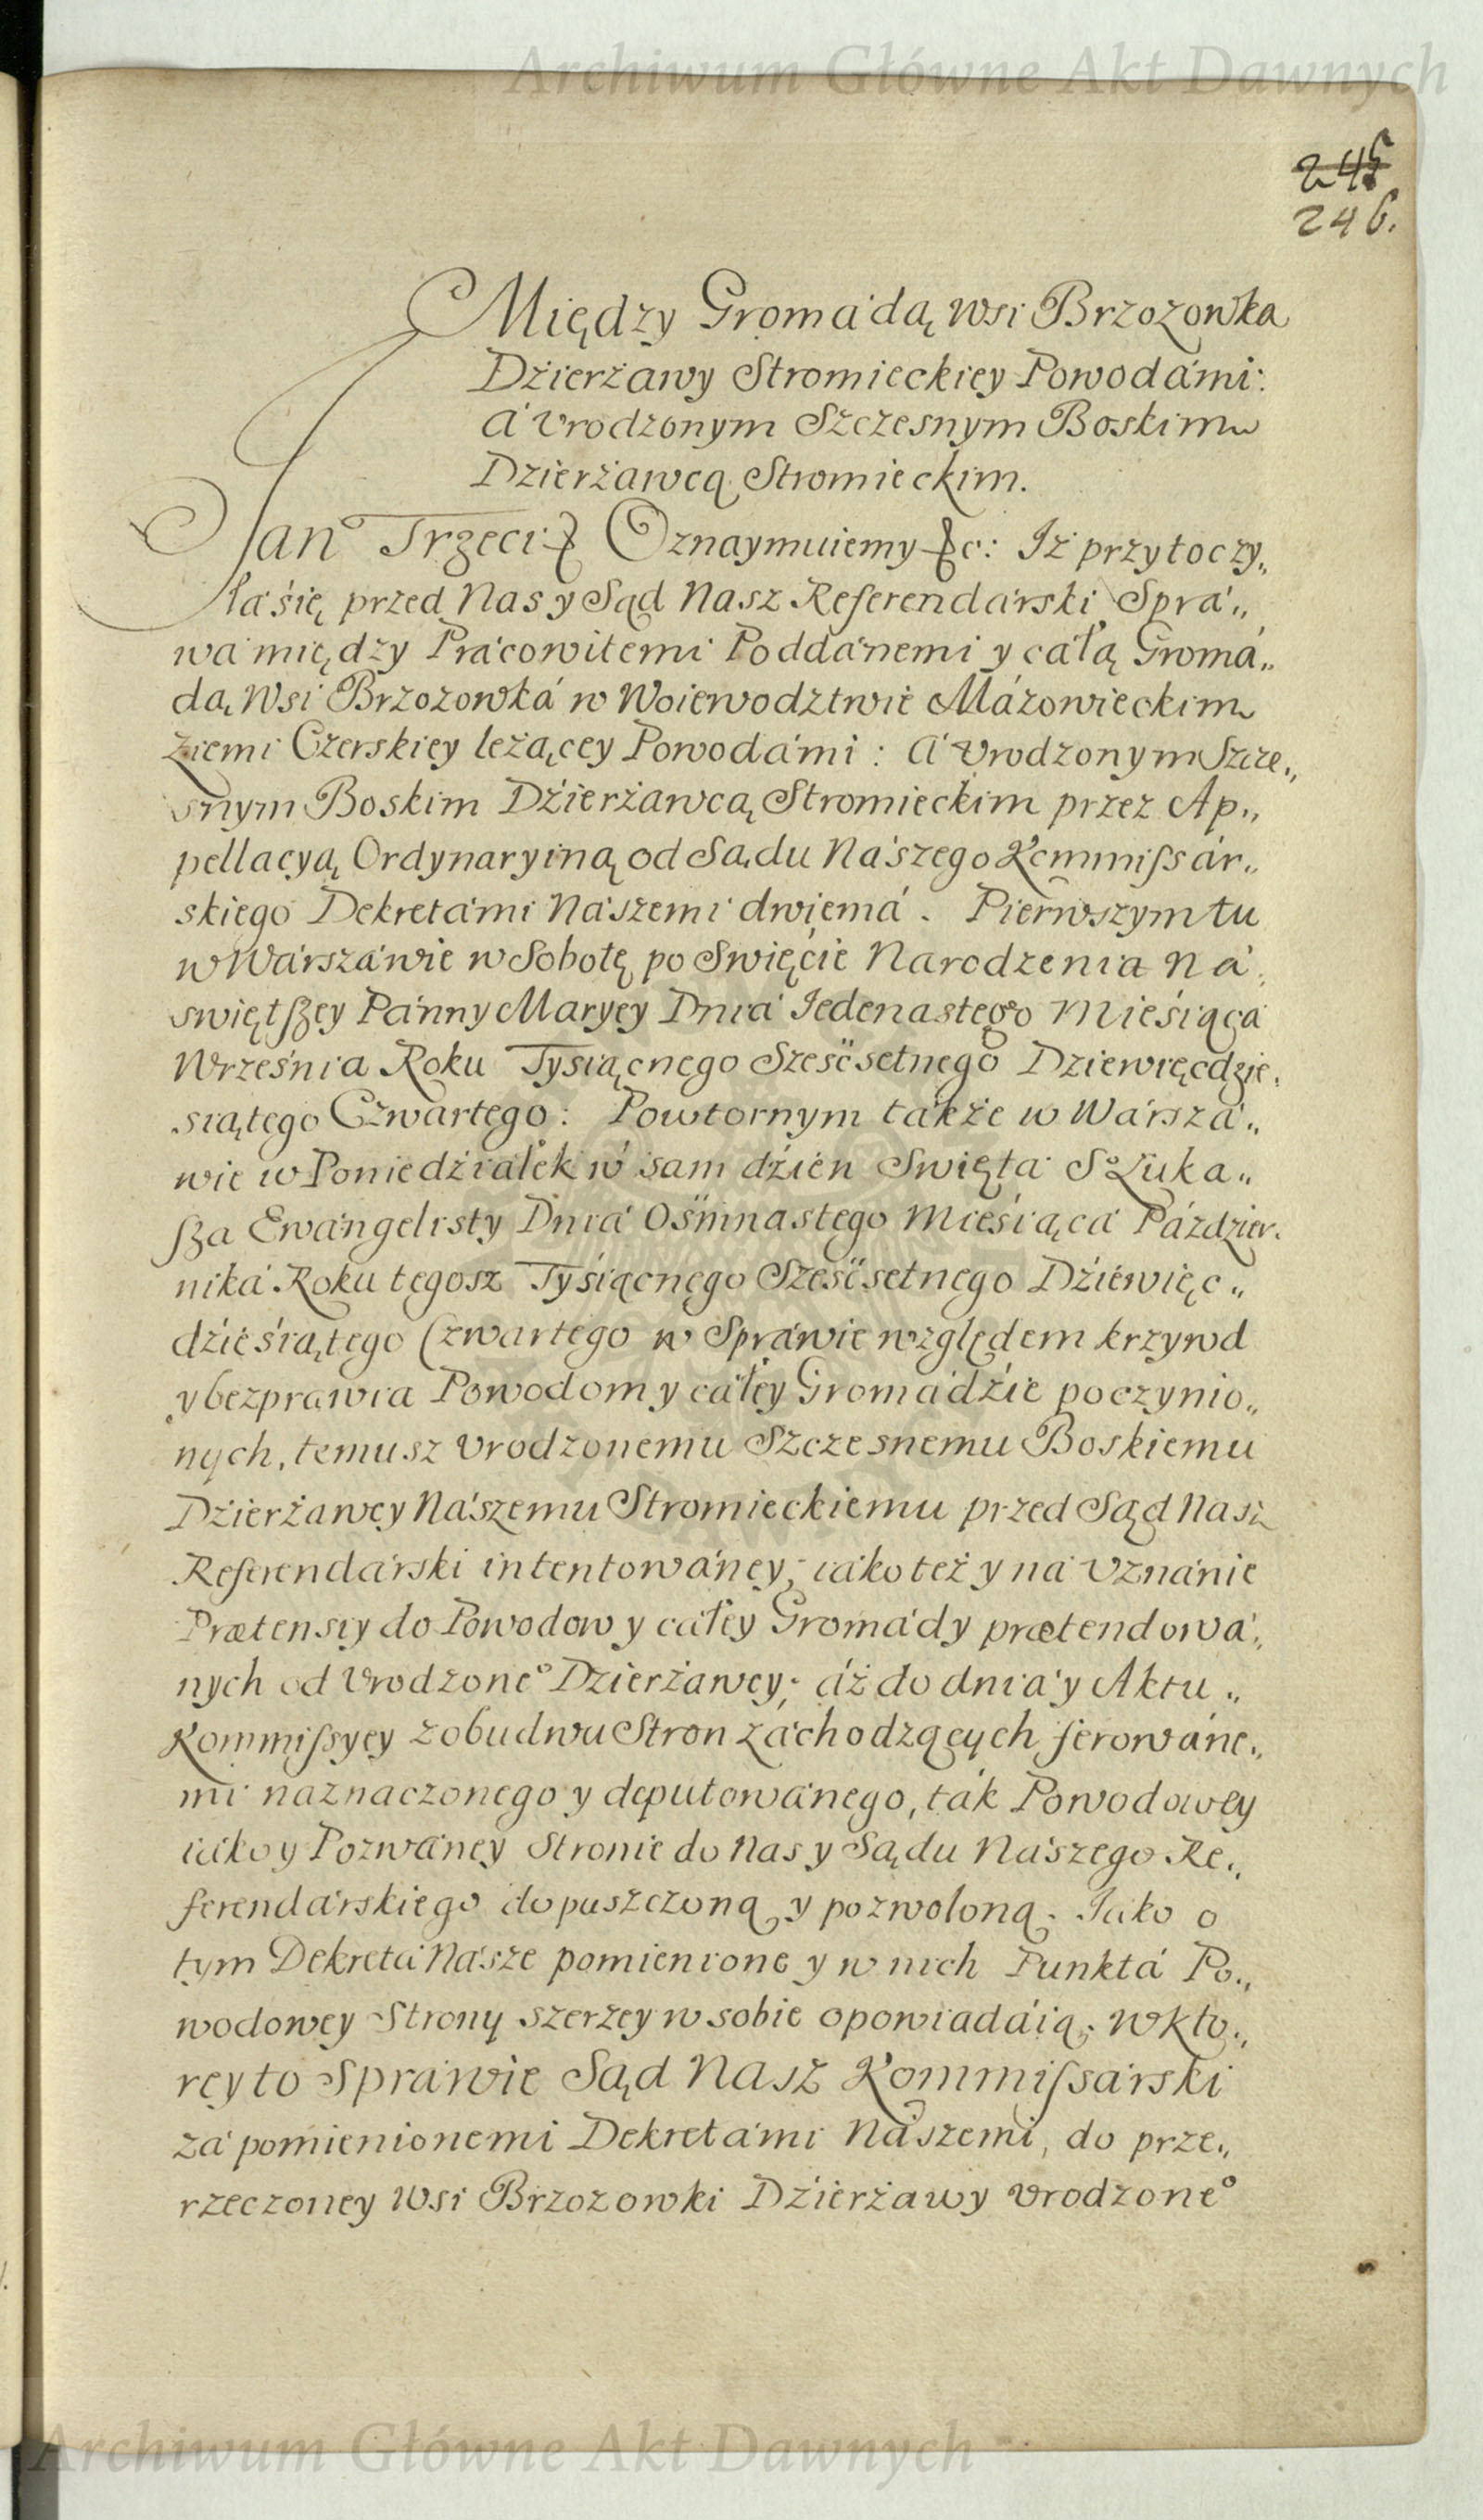 Archiwum Główne Akt Dawnych
245
246.
Między Gromádą Wsi Brzozowka
Dźierżawy Stromieckiey Powodámi:
á Vrodzonym Szczesnym Boskim
Dzierżawcą Stromieckim.
Jan Trzeci &c Oznaymuiemy &c: Iż przytoczy„
łá się przed Nas y Sąd Nasz Referendárski Sprá„
wá między Prácowitemi Poddánemi y cáłą Gromá„
dą Wsi Brzozowká w Woiewodztwie Mázowieckim
Ziemi Czerskiey leżącey Powodámi: á Vrodzonym Szcze„
snym Boskim Dźierżawcą Stromieckim przez Ap„
pellacyą Ordynaryiną od Sądu Nászego Kommiſsár„
skiego Dekretámi Nászemi dwiemá. Pierwszym tu
w Wárszáwie w Sobotę po Swięćie Narodzenia Ná„
świętſzey Pánny Maryey Dniá Iedenastego Mieśiącá
Września Roku Tysiącnego Szesćsetnego Dziewięcdzie„
siątego Czwartego: Powtornym tákże w Wárszá„
wie w Poniedźiáłek w sam dźień Swiętá S Łuka„
ſza Ewángelisty Dniá Ośmnastego Mieśiącá Páździer„
niká Roku tegosz Tyśiącnego Szesćsetnego Dźiewięc„
dźieśiątego Czwartego w Spráwie względem krzywd
y bezprawia Powodom y cáłey Gromádźie poczynio„
nych, temusz Vrodzonemu Szczesnemu Boskiemu
Dźierżawcy Nászemu Stromieckiemu przed Sąd Nasz
Referendárski intentowáney, iáko też y ná Vznánie
Prætensiy do Powodow y cáłey Gromády prætendowá„
nych od Vrodzone° Dźierżawcy; áż do dniá y Aktu„
Kommiſsyey z obudwu Stron záchodzących ferowáne„
mi náznaczonego y deputowánego, ták Powodowey
iáko y Pozwáney Stronie do Nas y Sądu Nászego Re„
ferendárskiego dopuszczoną y pozwoloną. Iáko o
tym Dekretá Násze pomienione y w nich Punktá Po„
wodowey Strony szerzey w sobie opowiadáią. W kto„
rey to Spráwie Sąd Nasz Kommiſsárski
zá pomienionemi Dekretámi Nászemi, do prze„
rzeczoney Wsi Brzozowki Dźierżawy Vrodzone°
Archiwum Główne Akt Dawnych